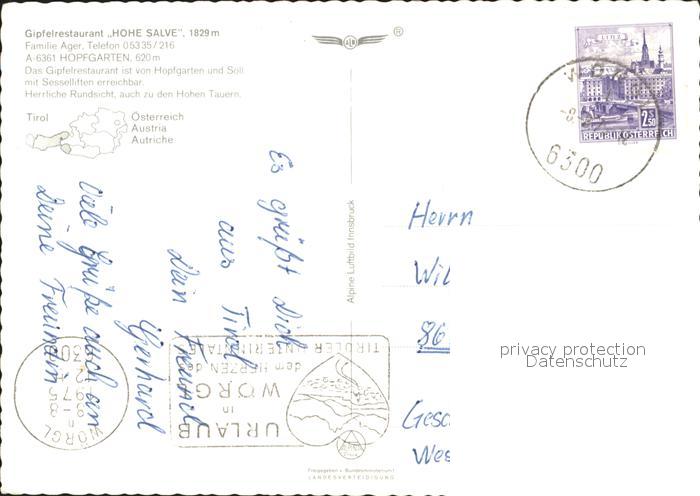 Gipfelrestaurant „HOHE SALVE", 1829 m
Familie Ager, Telefon 05335/216
A-6361 HOPFGARTEN, 620 m
Das Gipfelrestaurant ist von Hopfgarten und Söll
mit Sesselliften erreichbar.
Herrliche Rundsicht, auch zu den Hohen Tauern.
Tirol
Österreich
Austria
Autriche
®
LINZ
2.50
REPUBLIK ÖSTERREICH
6300
Es grüßt Dich
aus Tirol
Dein Freund
Gerhard
Viele Grüße auch an
Deine Freundin
Alpine Luftbild Innsbruck
Herrn
Wil
86
Gesc
Wes
privacy protection
Datenschutz
URLAUB
in
WÖRGL
dem HERZEN des
TIROLER UNTERINNTALS
WÖRGL
-8-8
1975
6300
Freigegeben v. Bundesministerium f.
LANDESVERTEIDIGUNG